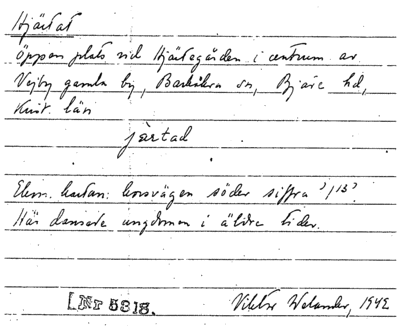 Hjärtat
öppen plats vid Hjärtegården i centrum av
Vejby gamla by, Barkåkra sn, Bjäre hd,
Krist. län
järtad
Ekon. kartan: korsvägen söder siffra "/13".
Här dansade ungdomen i äldre tider.
[Nr 5318.
Viktor Welander, 1942